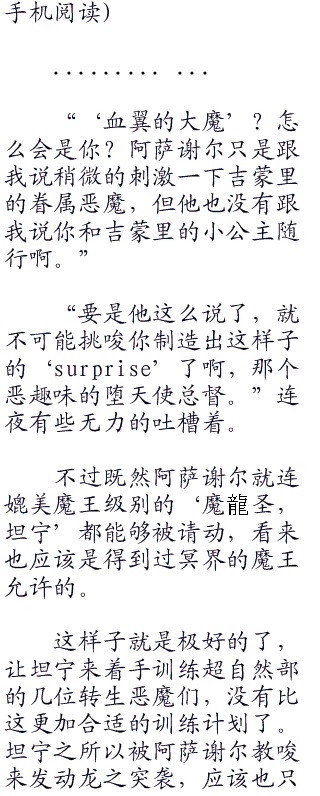 手机阅读）
......... ...
“‘血翼的大魔’？怎
么会是你？阿萨谢尔只是跟
我说稍微的刺激一下吉蒙里
的眷属恶魔，但他也没有跟
我说你和吉蒙里的小公主随
行啊。”
“要是他这么说了，就
不可能挑唆你制造出这样子
的‘surprise’了啊，那个
恶趣味的堕天使总督。”连
夜有些无力的吐槽着。
不过既然阿萨谢尔就连
媲美魔王级别的‘魔龍圣，
坦宁’都能够被请动，看来
也应该是得到过冥界的魔王
允许的。
这样子就是极好的了，
让坦宁来着手训练超自然部
的几位转生恶魔们，没有比
这更加合适的训练计划了。
坦宁之所以被阿萨谢尔教唆
来发动龙之突袭，应该也只